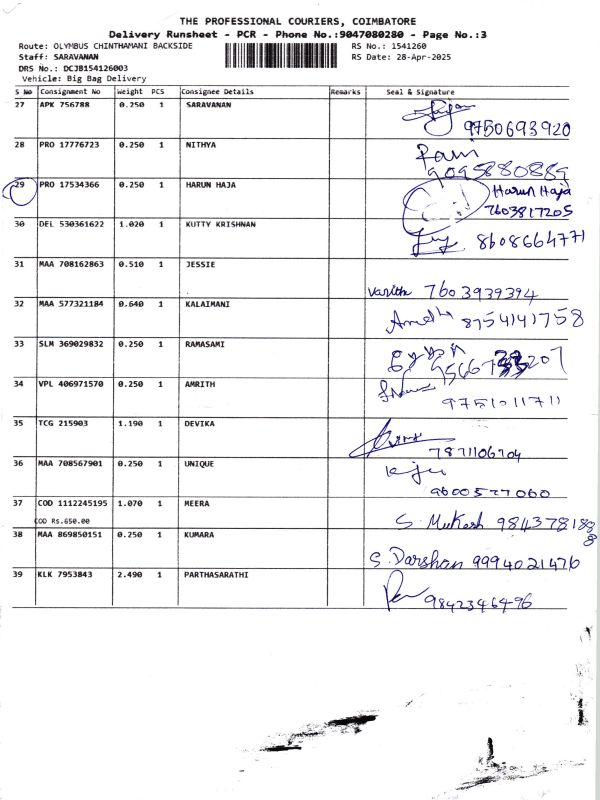 THE PROFESSIONAL COURIERS, COIMBATORE
Delivery Runsheet - PCR - Phone No.:9047080280 - Page No.:3
Route: OLYMBUS CHINTHAMANI BACKSIDE RS No.: 1541260
Staff: SARAVANAN RS Date: 28-Apr-2025
DRS No.: DCJB154126003
Vehicle: Big Bag Delivery
S No Consignment No Weight PCS Consignee Details Remarks Seal & Signature
27 APK 756788 0.250 1 SARAVANAN
9750693920
28 PRO 17776723 0.250 1 NITHYA
Rani
9095880889
29 PRO 17534366 0.250 1 HARUN HAJA Harun Haja
7603817205
30 DEL 530361622 1.020 1 KUTTY KRISHNAN
8608664771
31 MAA 708162863 0.510 1 JESSIE
7603939394
32 MAA 577321184 0.640 1 KALAIMANI
8754141758
33 SLM 369029832 0.250 1 RAMASAMI
34 VPL 406971570 0.250 1 AMRITH
9751011711
35 TCG 215903 1.190 1 DEVIKA
7871106704
36 MAA 708567901 0.250 1 UNIQUE
9600577060
37 COD 1112245195 1.070 1 MEERA
COD Rs.650.00 S. Mukesh 9843781888
38 MAA 869850151 0.250 1 KUMARA
S. Darshan 9994021476
39 KLK 7953843 2.490 1 PARTHASARATHI
9842346496